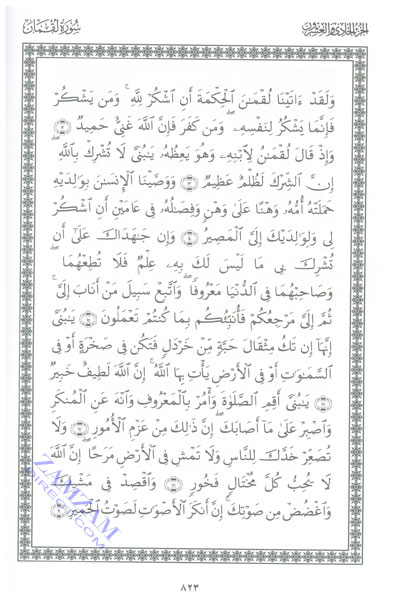 الجزء الحادي والعشرون
سُورَةُ لُقْمَان
وَلَقَدْ ءَاتَيْنَا لُقْمَٰنَ ٱلْحِكْمَةَ أَنِ ٱشْكُرْ لِلَّهِ ۚ وَمَن يَشْكُرْ
فَإِنَّمَا يَشْكُرُ لِنَفْسِهِۦ ۖ وَمَن كَفَرَ فَإِنَّ ٱللَّهَ غَنِىٌّ حَمِيدٌ ﴿١٢﴾
وَإِذْ قَالَ لُقْمَٰنُ لِٱبْنِهِۦ وَهُوَ يَعِظُهُۥ يَٰبُنَىَّ لَا تُشْرِكْ بِٱللَّهِ ۖ
إِنَّ ٱلشِّرْكَ لَظُلْمٌ عَظِيمٌ ﴿١٣﴾ وَوَصَّيْنَا ٱلْإِنسَٰنَ بِوَٰلِدَيْهِ
حَمَلَتْهُ أُمُّهُۥ وَهْنًا عَلَىٰ وَهْنٍ وَفِصَٰلُهُۥ فِى عَامَيْنِ أَنِ ٱشْكُرْ
لِى وَلِوَٰلِدَيْكَ إِلَىَّ ٱلْمَصِيرُ ﴿١٤﴾ وَإِن جَٰهَدَاكَ عَلَىٰٓ أَن
تُشْرِكَ بِى مَا لَيْسَ لَكَ بِهِۦ عِلْمٌ فَلَا تُطِعْهُمَا ۖ
وَصَاحِبْهُمَا فِى ٱلدُّنْيَا مَعْرُوفًا ۖ وَٱتَّبِعْ سَبِيلَ مَنْ أَنَابَ إِلَىَّ ۚ
ثُمَّ إِلَىَّ مَرْجِعُكُمْ فَأُنَبِّئُكُم بِمَا كُنتُمْ تَعْمَلُونَ ﴿١٥﴾ يَٰبُنَىَّ
إِنَّهَآ إِن تَكُ مِثْقَالَ حَبَّةٍ مِّنْ خَرْدَلٍ فَتَكُن فِى صَخْرَةٍ أَوْ فِى
ٱلسَّمَٰوَٰتِ أَوْ فِى ٱلْأَرْضِ يَأْتِ بِهَا ٱللَّهُ ۚ إِنَّ ٱللَّهَ لَطِيفٌ خَبِيرٌ
﴿١٦﴾ يَٰبُنَىَّ أَقِمِ ٱلصَّلَوٰةَ وَأْمُرْ بِٱلْمَعْرُوفِ وَٱنْهَ عَنِ ٱلْمُنكَرِ
وَٱصْبِرْ عَلَىٰ مَآ أَصَابَكَ ۖ إِنَّ ذَٰلِكَ مِنْ عَزْمِ ٱلْأُمُورِ ﴿١٧﴾ وَلَا
تُصَعِّرْ خَدَّكَ لِلنَّاسِ وَلَا تَمْشِ فِى ٱلْأَرْضِ مَرَحًا ۖ إِنَّ ٱللَّهَ
لَا يُحِبُّ كُلَّ مُخْتَالٍ فَخُورٍ ﴿١٨﴾ وَٱقْصِدْ فِى مَشْيِكَ
وَٱغْضُضْ مِن صَوْتِكَ ۚ إِنَّ أَنكَرَ ٱلْأَصْوَٰتِ لَصَوْتُ ٱلْحَمِيرِ ﴿١٩﴾
٨٢٣
ZAMZAM
DIRECT.COM